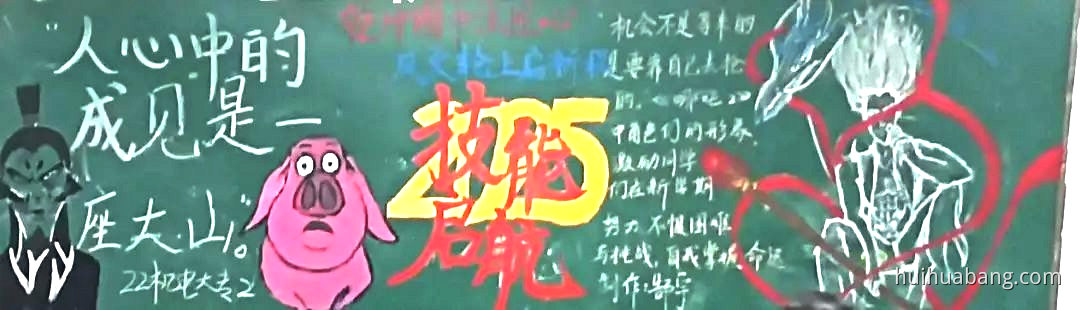 "人心中的
成见是一
座大山"。
22机电大专2
2025
技能
启航
"机会不是等来的
是要靠自己去抢
的,《哪吒2》
中角色们的形象,
激励同学
们在新学期
努力 不惧困难
与挑战,自我掌握命运
制作:
huihuabang.com